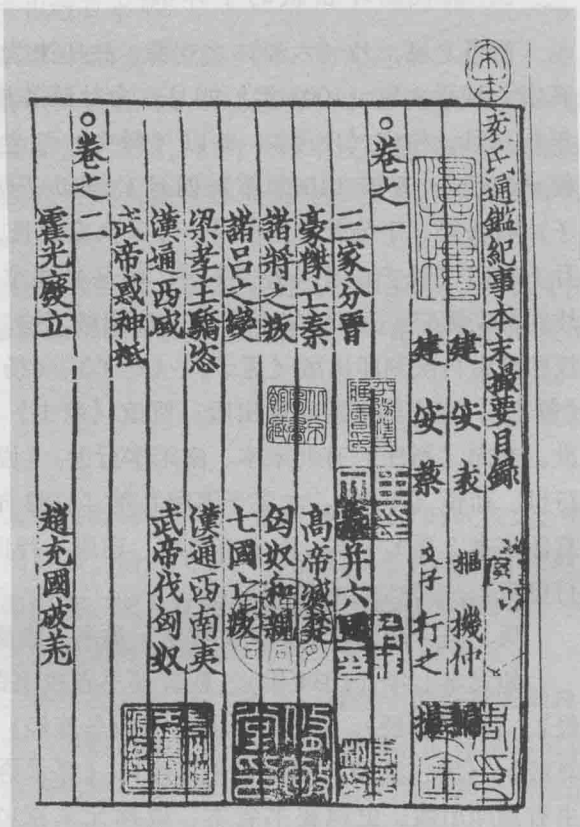 宋本
袁氏通鑑紀事本末撮要目録
建安袁 樞 機仲 編
建安蔡 文子 行之 撮
○卷之一
三家分晉 秦并六國
豪傑亡秦 高帝滅楚
諸將之叛 匈奴和親
諸呂之變 七國之叛
梁孝王驕恣 漢通西南夷
漢通西域 武帝伐匈奴
武帝惑神恠
○卷之二
霍光廢立 趙充國破羌